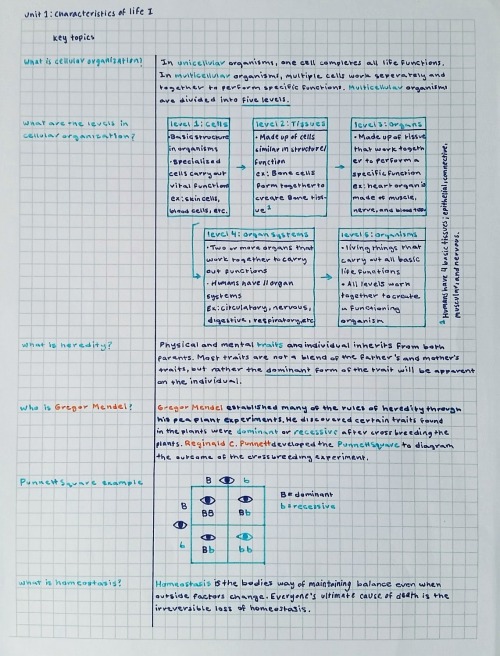 Unit 1: Characteristics of life I
Key topics
What is cellular organization?
In unicellular organisms, one cell completes all life functions.
In multicellular organisms, multiple cells work seperately and
together to perform specific functions. Multicellular organisms
are divided into five levels.
What are the levels in
cellular organization?
level 1: Cells
• Basic structure
in organisms
• Specialised
cells carry out
vital functions
ex: skin cells,
blood cells, etc.
level 2: Tissues
• Made up of cells
similar in structure/
function
ex: Bone cells
form together to
create Bone tiss-
ue 1
level 3: Organs
• Made up of tissue
that work togeth
er to perform a
specific function
ex: heart organ is
made of muscle,
nerve, and blood tissue
level 4: organ systems
• Two or more organs that
work together to carry
out functions
• Humans have 11 organ
systems
Ex: circulatory, nervous,
digestive, respiratory, etc
level 5: organisms
• living things that
carry out all basic
life functions
• All levels work
together to create
a functioning
organism
1 Humans have 4 basic tissues; epithelial, connective,
muscular, and nervous.
What is heredity?
Physical and mental traits an individual inherits from both
parents. Most traits are not a blend of the father's and mother's
traits, but rather the dominant form of the trait will be apparent
on the individual.
Who is Gregor Mendel?
Gregor Mendel established many of the rules of heredity through
his pea plant experiments. He discovered certain traits found
in the plants were dominant or recessive after crossbreeding the
plants. Reginald C. Punnett developed the Punnett Square to diagram
the outcome of the crossbreeding experiment.
Punnett Square example
B b
B BB Bb
b Bb bb
B = dominant
b = recessive
What is homeostasis?
Homeostasis is the bodies way of maintaining balance even when
outside factors change. Everyone's ultimate cause of death is the
irreversible loss of homeostasis.